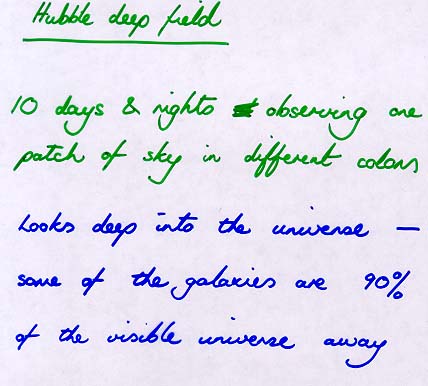 Hubble deep field
10 days & nights observing one
patch of sky in different colors
Looks deep into the universe —
some of the galaxies are 90%
of the visible universe away